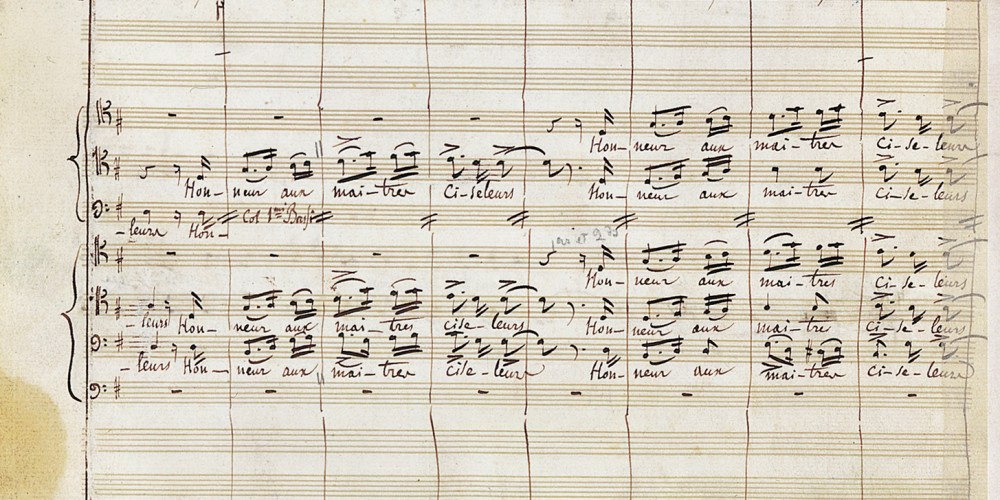 Hon- neur aux maî-tres Ci-se-leurs
Hon- neur aux maî-tres Ci-seleurs Hon- neur aux maî-tres Ci-se-leurs
-leurs Hon- Col 1ers Bassi
Hon- neur aux maî-tres Ci-se-leurs
-leurs Hon- neur aux maî-tres cise-leurs Hon- neur aux maî-tre Ci-se-leurs
-leurs Hon- neur aux maî-tres Cise-leurs Hon- neur aux maî-tres Ci-se-leurs